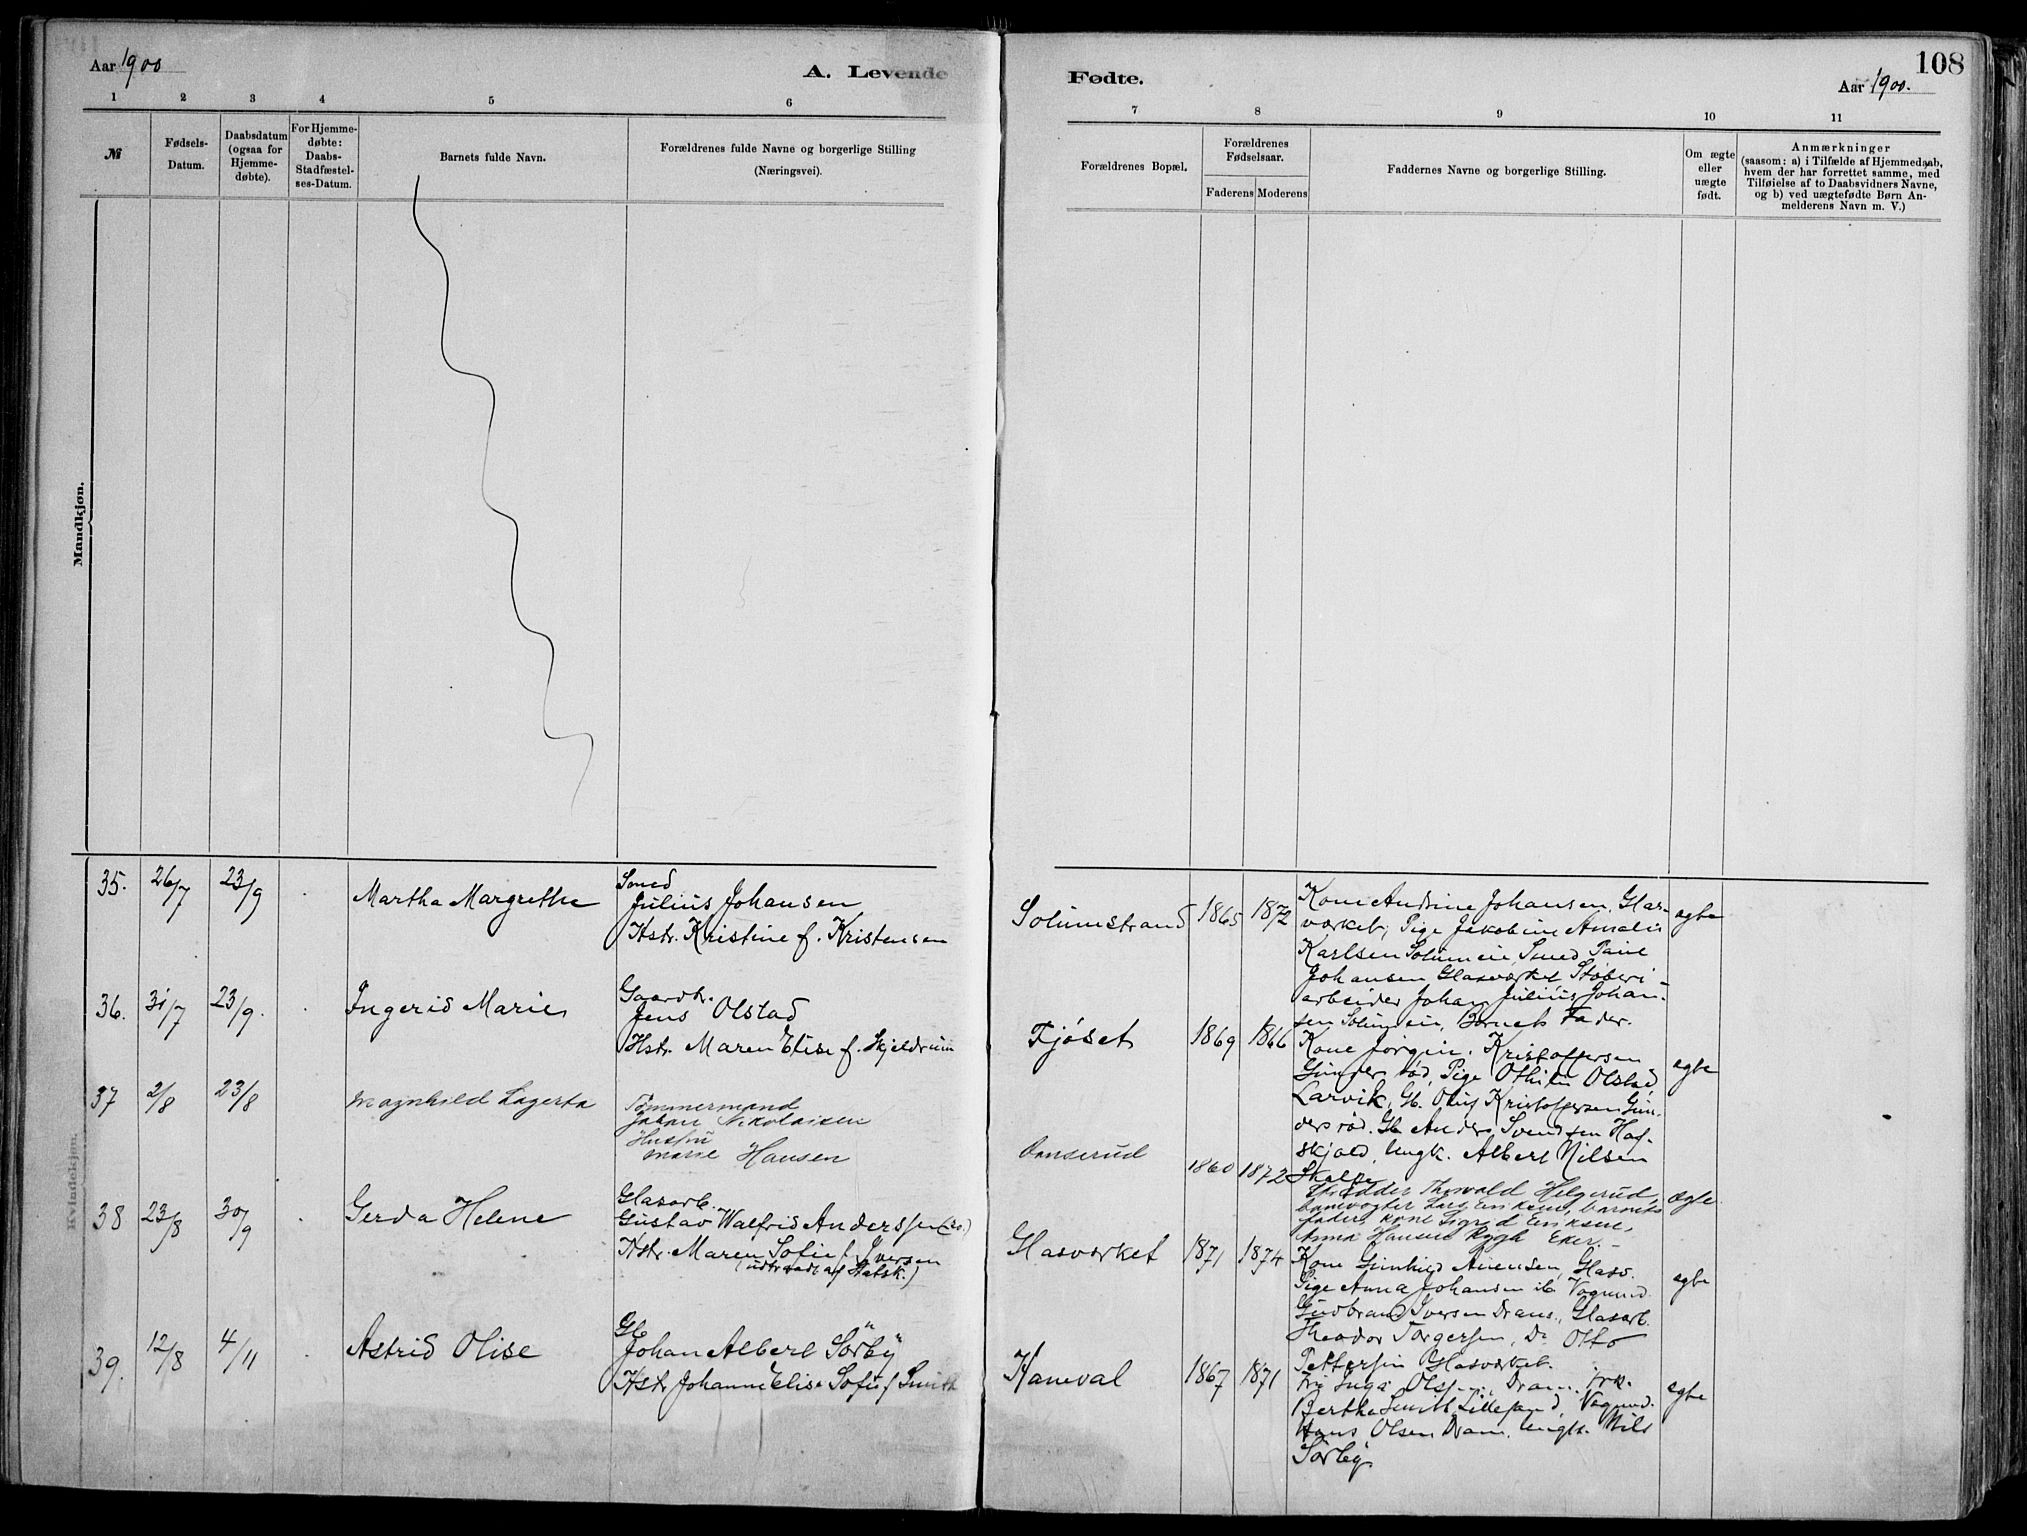 Aar 1900
A. Levende
1 2 3 4 5 6
№
Fødsels-
Datum.
Daabsdatum
(ogsaa for
Hjemme-
døbte).
For Hjemme-
døbte:
Daabs-
Stadfæstel-
ses-Datum.
Barnets fulde Navn.
Forældrenes fulde Navne og borgerlige Stilling
(Næringsvei).
Mandkjøn.
Kvindekjøn.
35. 26/7 23/9 Martha Margrethe
Smed
Julius Johansen
Hstr. Kristine f. Kristensen
36. 31/7 23/9. Ingerid Marie
Gaardbr.
Jens Olstad
Hstr. Maren Elise f. Skjeldrum
37 2/8 23/8 Magnhild Lagerta
Tømmermand
Johan Nikolaisen
Hustru
Marie Hansen
38 23/8 30/9 Gerda Helene
Glasarb.
Gustav Walfrid Anderssen
Hstr. Maren Sofie f. Iversen
(udtraadt af Statsk.)
39. 12/8 4/11 Astrid Olise
Gb.
Johan Albert Sörby
Hstr. Johanne Elise Sofie f. Smith
Fødte.
108
Aar 1900.
7 8 9 10 11
Forældrenes Bopæl.
Forældrenes
Fødselsaar.
Faderens Moderens
Faddernes Navne og borgerlige Stilling.
Om ægte
eller
uægte
født.
Anmærkninger
(saasom: a) i Tilfælde af Hjemmedaab,
hvem der har forrettet samme, med
Tilføielse af to Daabsvidners Navne,
og b) ved uægtefødte Børn An-
melderens Navn m. V.)
Solumstrand 1865 1872 ægte
Kone Andrine Johansen, Glas-
værket, Pige Jakobine Amalie
Karlsen Solumeie, Smed Paul
Johansen Glasværket Støberi-
arbeider Johan Julius Johan-
sen Solumeie, Barnets Fader.
Fjøset 1869 1866 ægte
Kone Jørgine Kristoffersen
Gundersrød, Pige Othilie Olstad
Larvik, Gb. Oluf Kristoffersen Gun-
dersrød. Gb Anders Svendsen Haf-
skjold, Ungk. Albert Nilsen
1860 1872 ægte
Thorvald Helgerud,
banevogter Lars Eriksen, barnets
fader, kone Sigrid Eriksen,
Anna Hansen Rygh Eker.
Glasværket 1871 1874 ægte
Kone Gunhild Glasv.
Pige Anna Johansen ib. Vognmd.
Gudbrand Iversen Dram., Glasarb.
Theodor Torgersen, Do Otto
Pettersen Glasværket.
Kaneval 1867 1871 ægte
Fru Inga Olsen, Dram., Frk.
Bertha Smith Vognmd.
Hans Olsen Dram. Ungk. Nils
Sörby